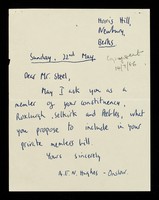 Horris Hill,
Newbury,
Berks
Sunday, 22nd May
Dear Mr. Steel,
May I ask you as a
member of your constituency,
Roxburgh, Selkirk and Peebles, what
you propose to include in your
private members bill.
Yours sincerely
A.F.N. Hughes-Onslow.